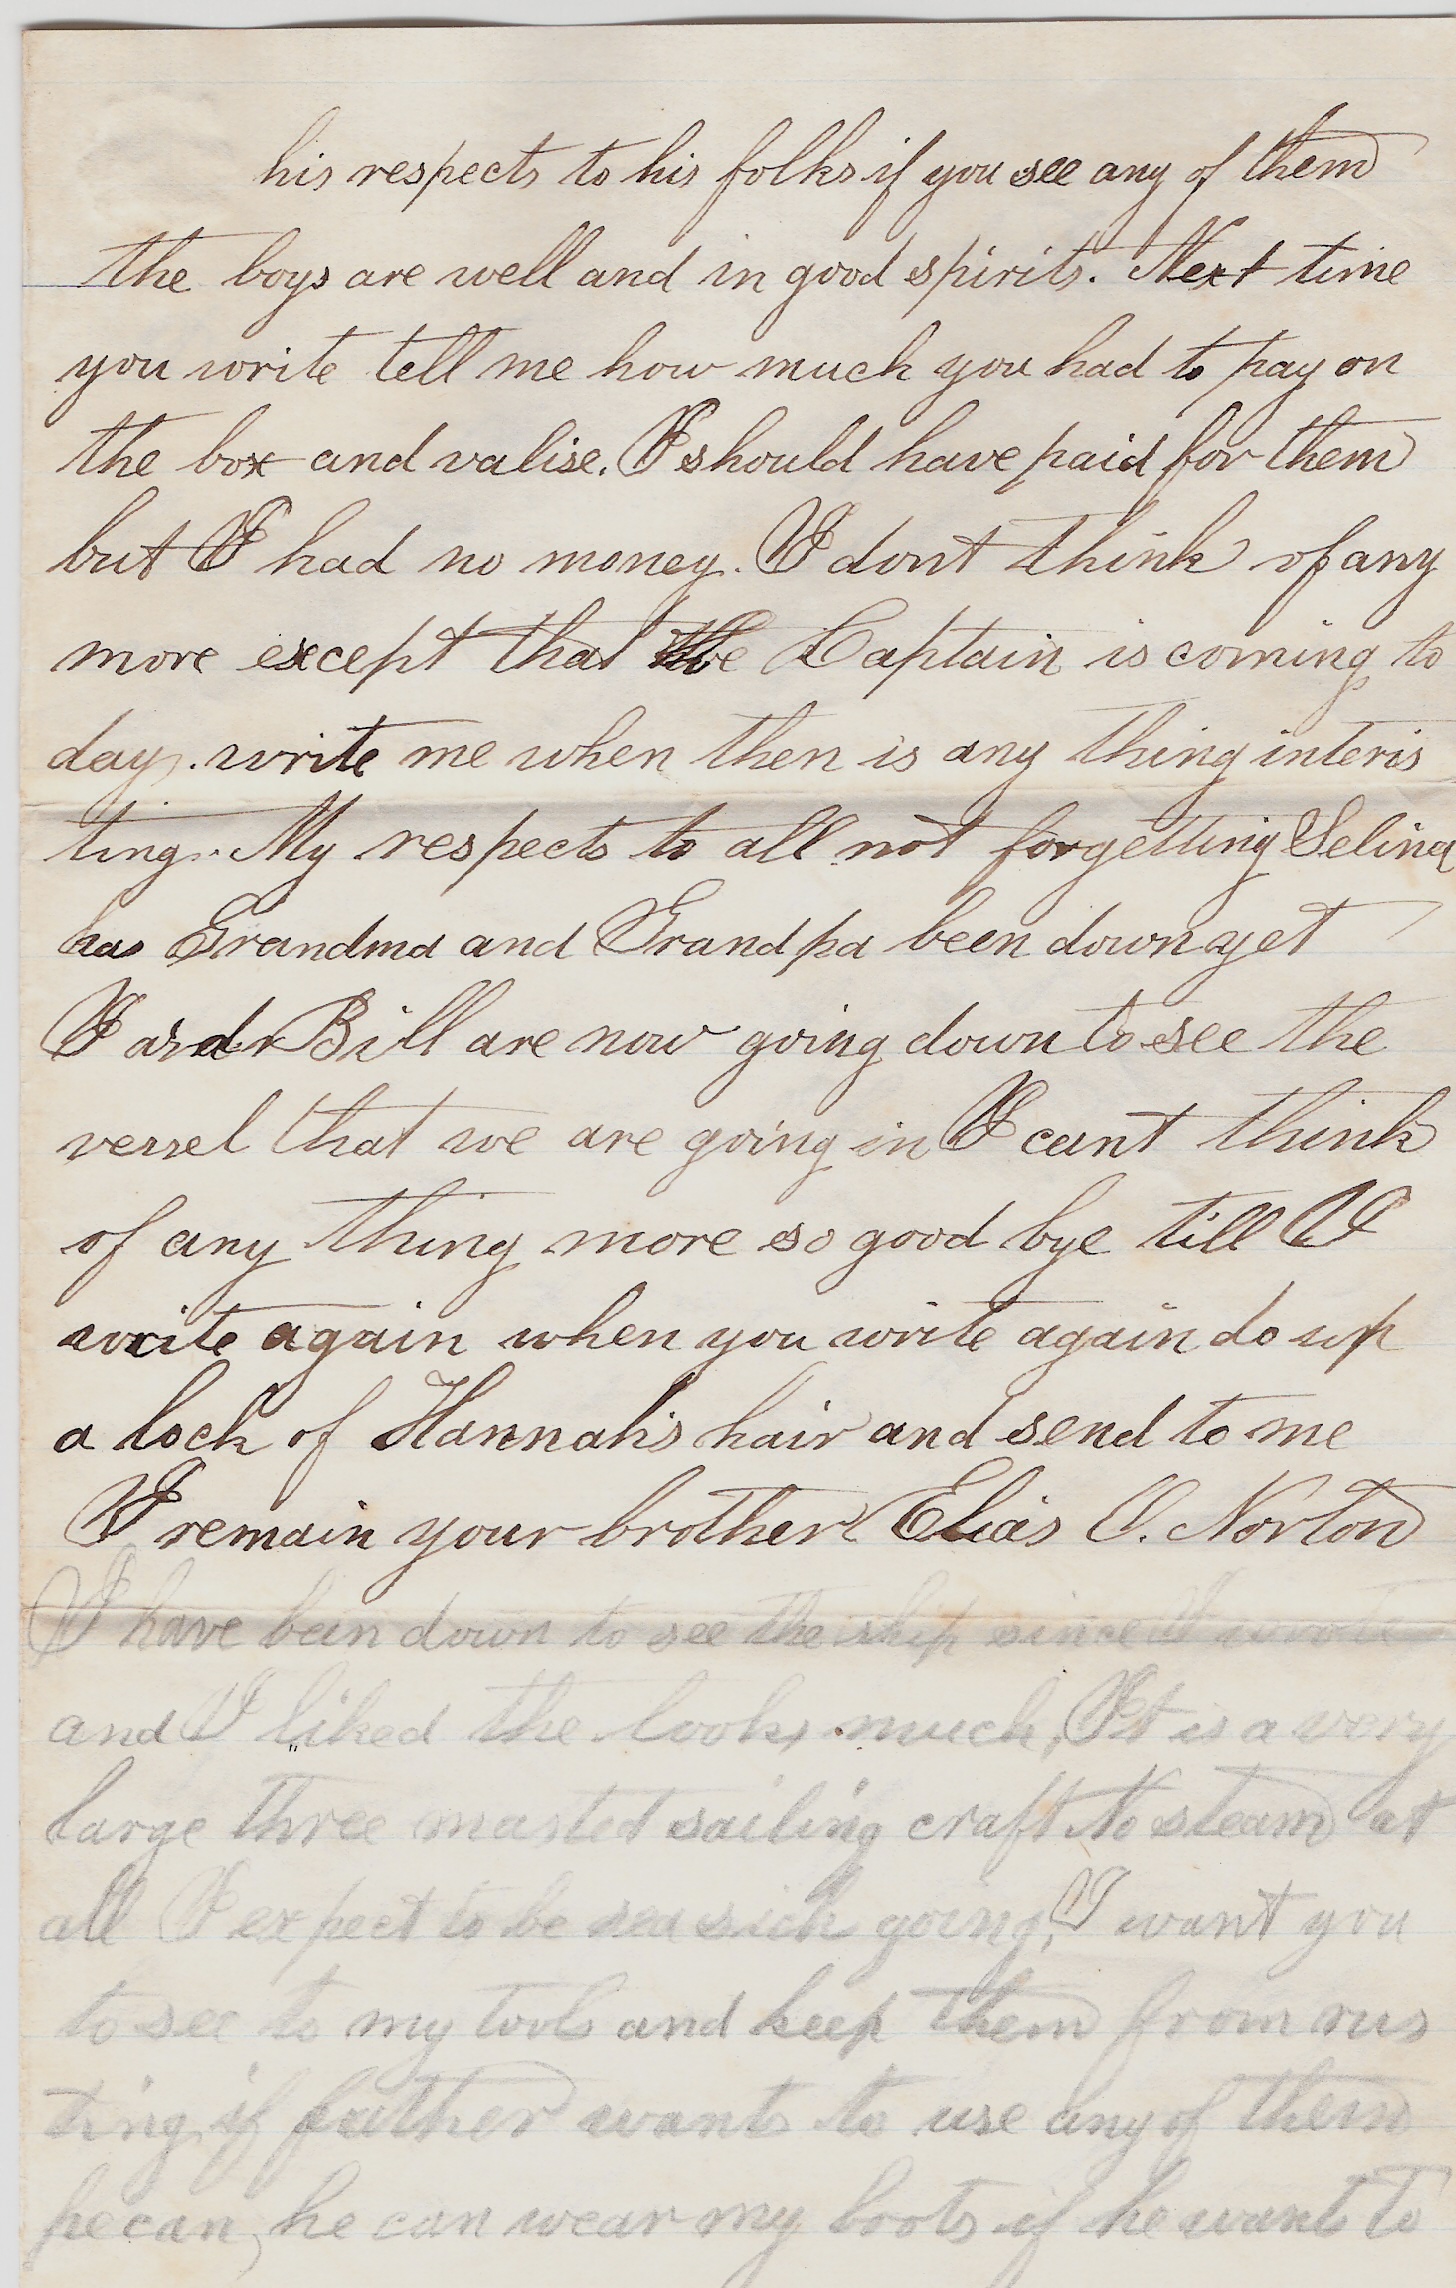 his respects to his folks if you see any of them
the boys are well and in good spirits. Next time
you write tell me how much you had to pay on
the box and valise. I should have paid for them
but I had no money. I dont think of any
more except that the Captain is coming to
day. write me when then is any thing interis
ting. My respects to all not forgetting Selina
has Grandma and Grandpa been down yet
I and Bill are now going down to see the
vessel that we are going in I cant think
of any thing more so good bye till I
write again when you write again do up
a lock of Hannah's hair and send to me
I remain your brother Elias O. Norton
I have been down to see the ship since I wrote
and I liked the looks much, It is a very
large three masted sailing craft No steam at
all I expect to be sea sick going, I want you
to see to my tools and keep them from rus
ting if father wants to use any of them
he can, he can wear my boots if he wants to